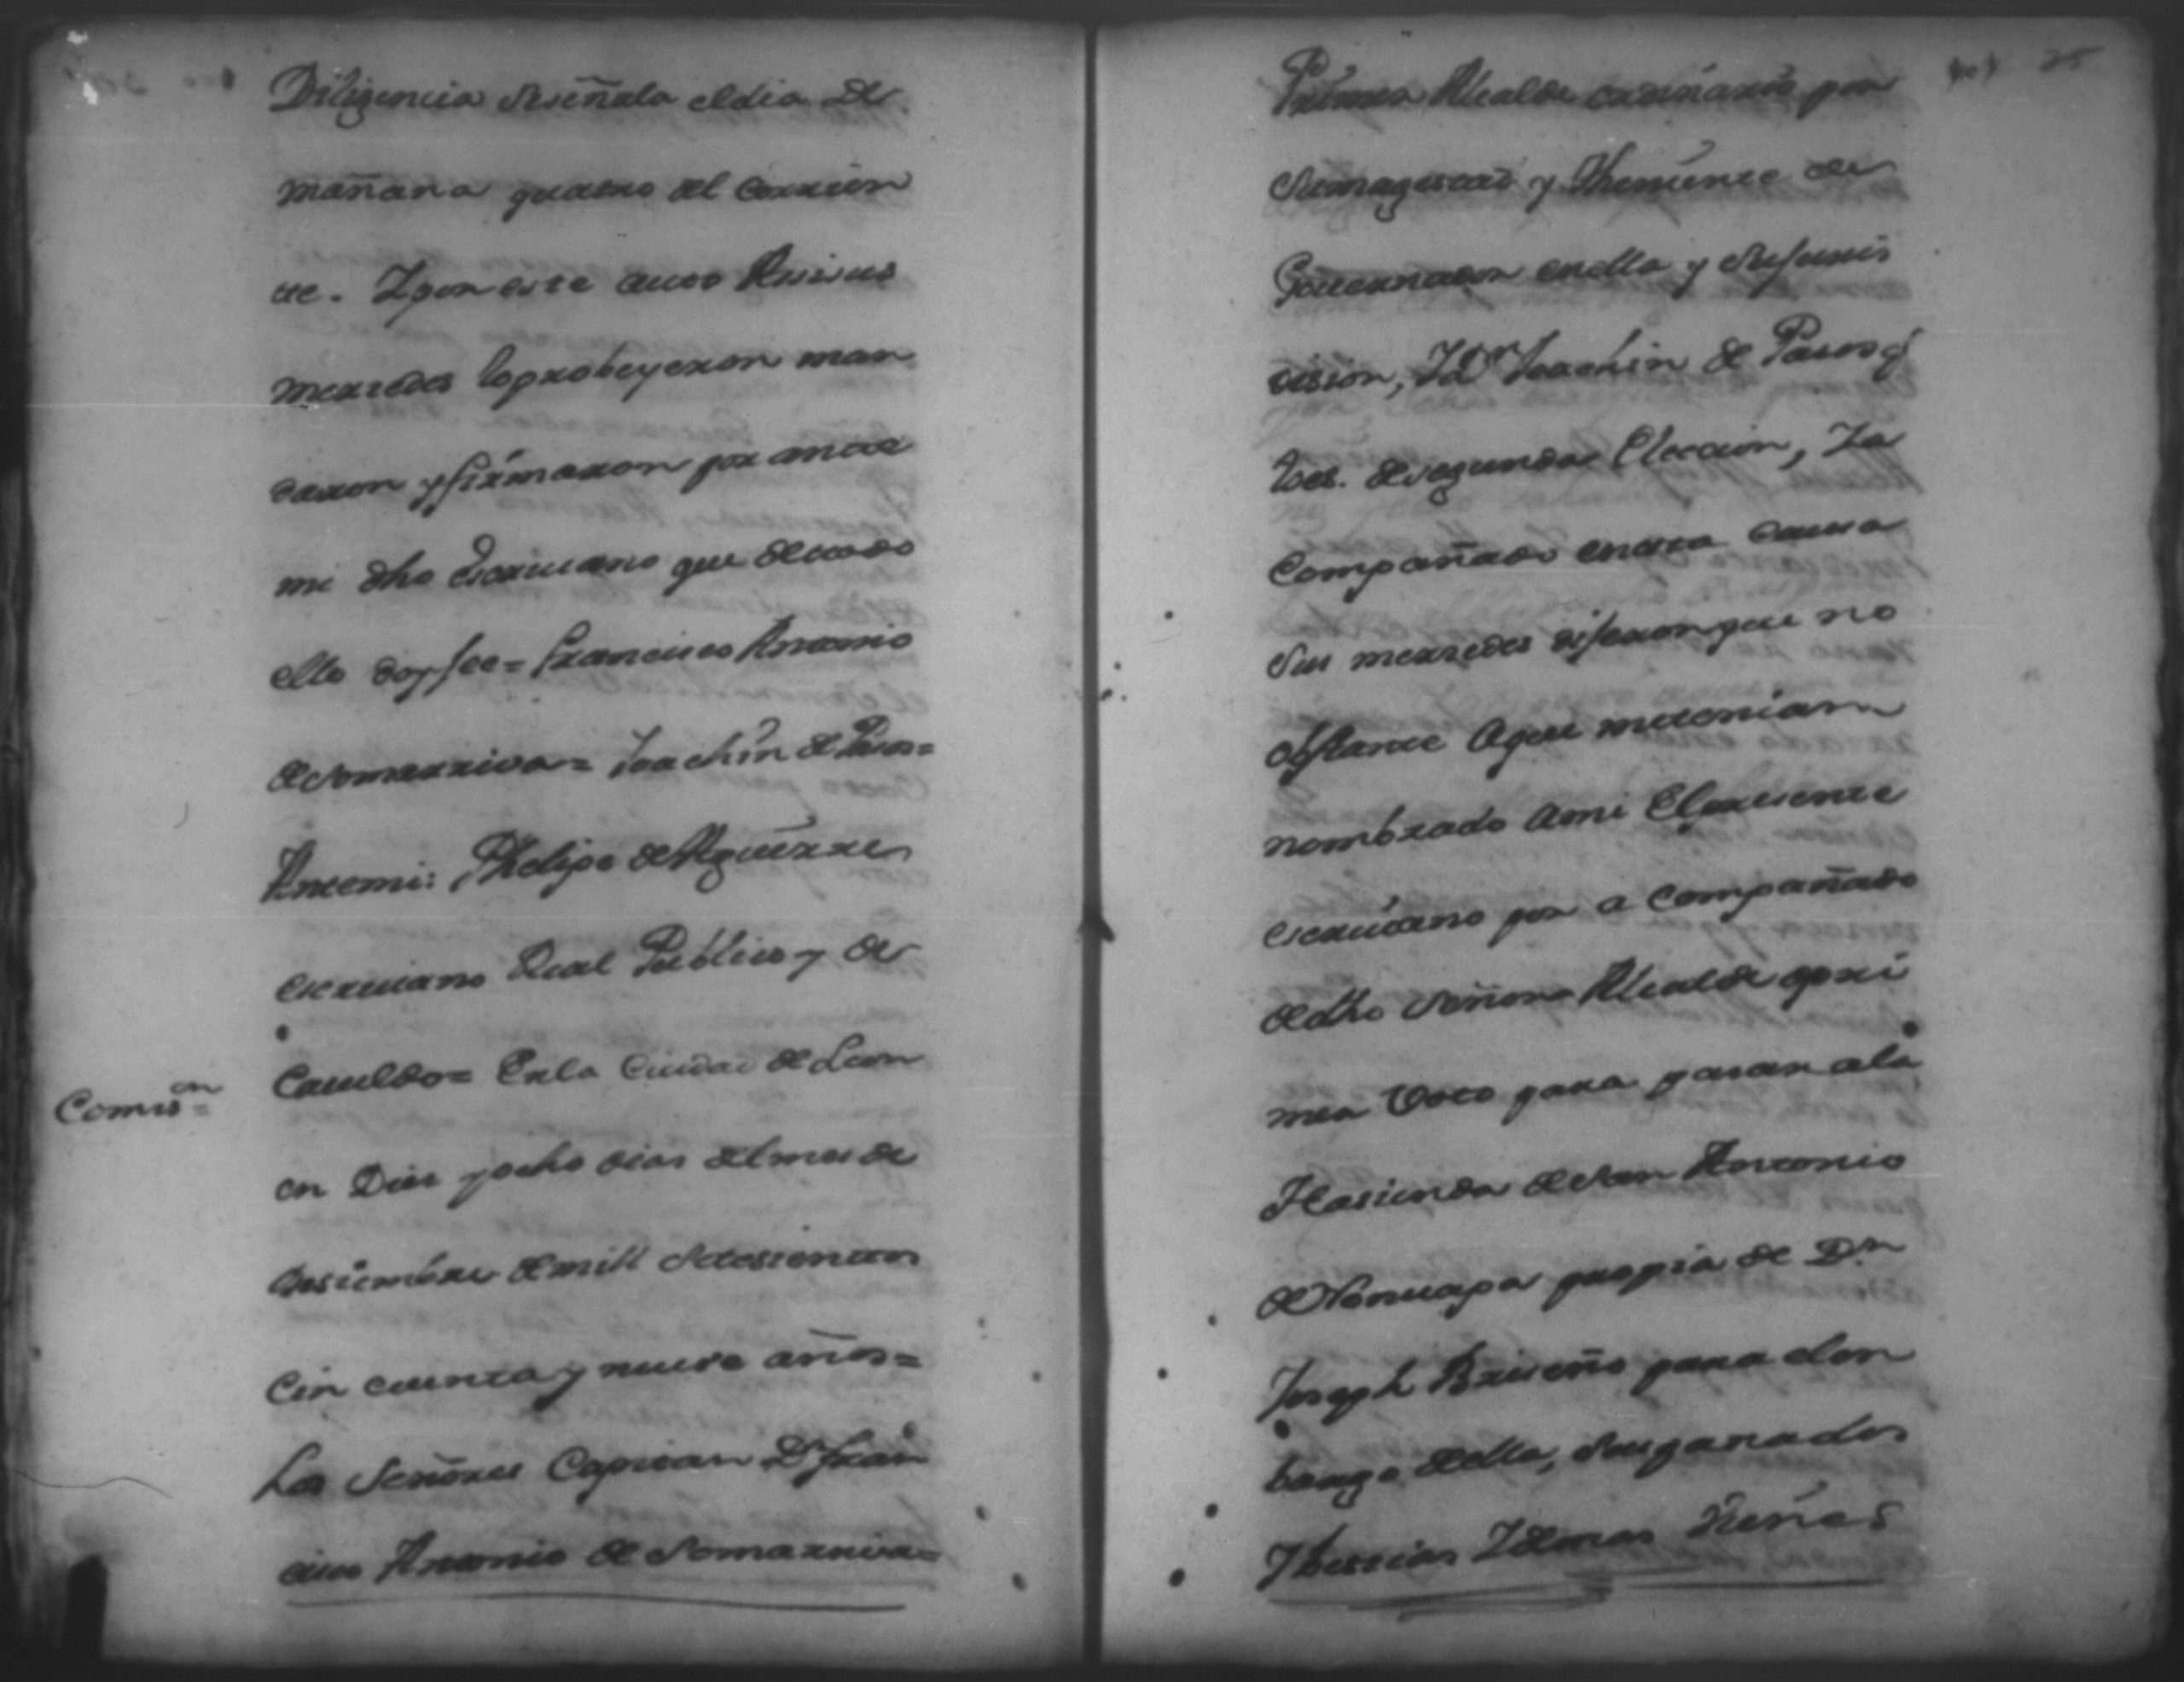 Diligencia seseñala eldia de
mañana quatro del corrien
te. Ypor este auto Assi sus
mercedes loprobeyeron man
daron yfirmaron por ante
mi dho escriuano que detodo
ello doyfee = Francisco Antonio
deSomarriva = Joachin de Pasos =
Antemi: Phelipe deAguirre
escriuano Real Publico y de
Cauildo = Enla Ciudad de Leon
Comis.on =
en Dies yocho dias delmes de
Disiembre demill Setesientos
Cin cuenta y nueve años =
Los Señores Capitan Dn Fran
cisco Antonio de Somarriva =
Primer Alcalde ordinario por
Sumagestad y Theniente de
Gouernador enella y Sujuris
dision, Y Dn Joachin de Pasos q
loes. desegunda Eleccion, Ya
Compañado enesta Causa
Sus mercedes dijeron que no
obstante Aque metenian
nombrado Ami Elpresente
escriuano por a Compañado
dedho Señor Alcalde depri
mer Voto para pasar ala
Hasienda deSan Antonio
deNonuapa propia de Dn
Joseph Briseño para elem
bargo della, Sus ganados
Ybestias Ydemas vienes
25